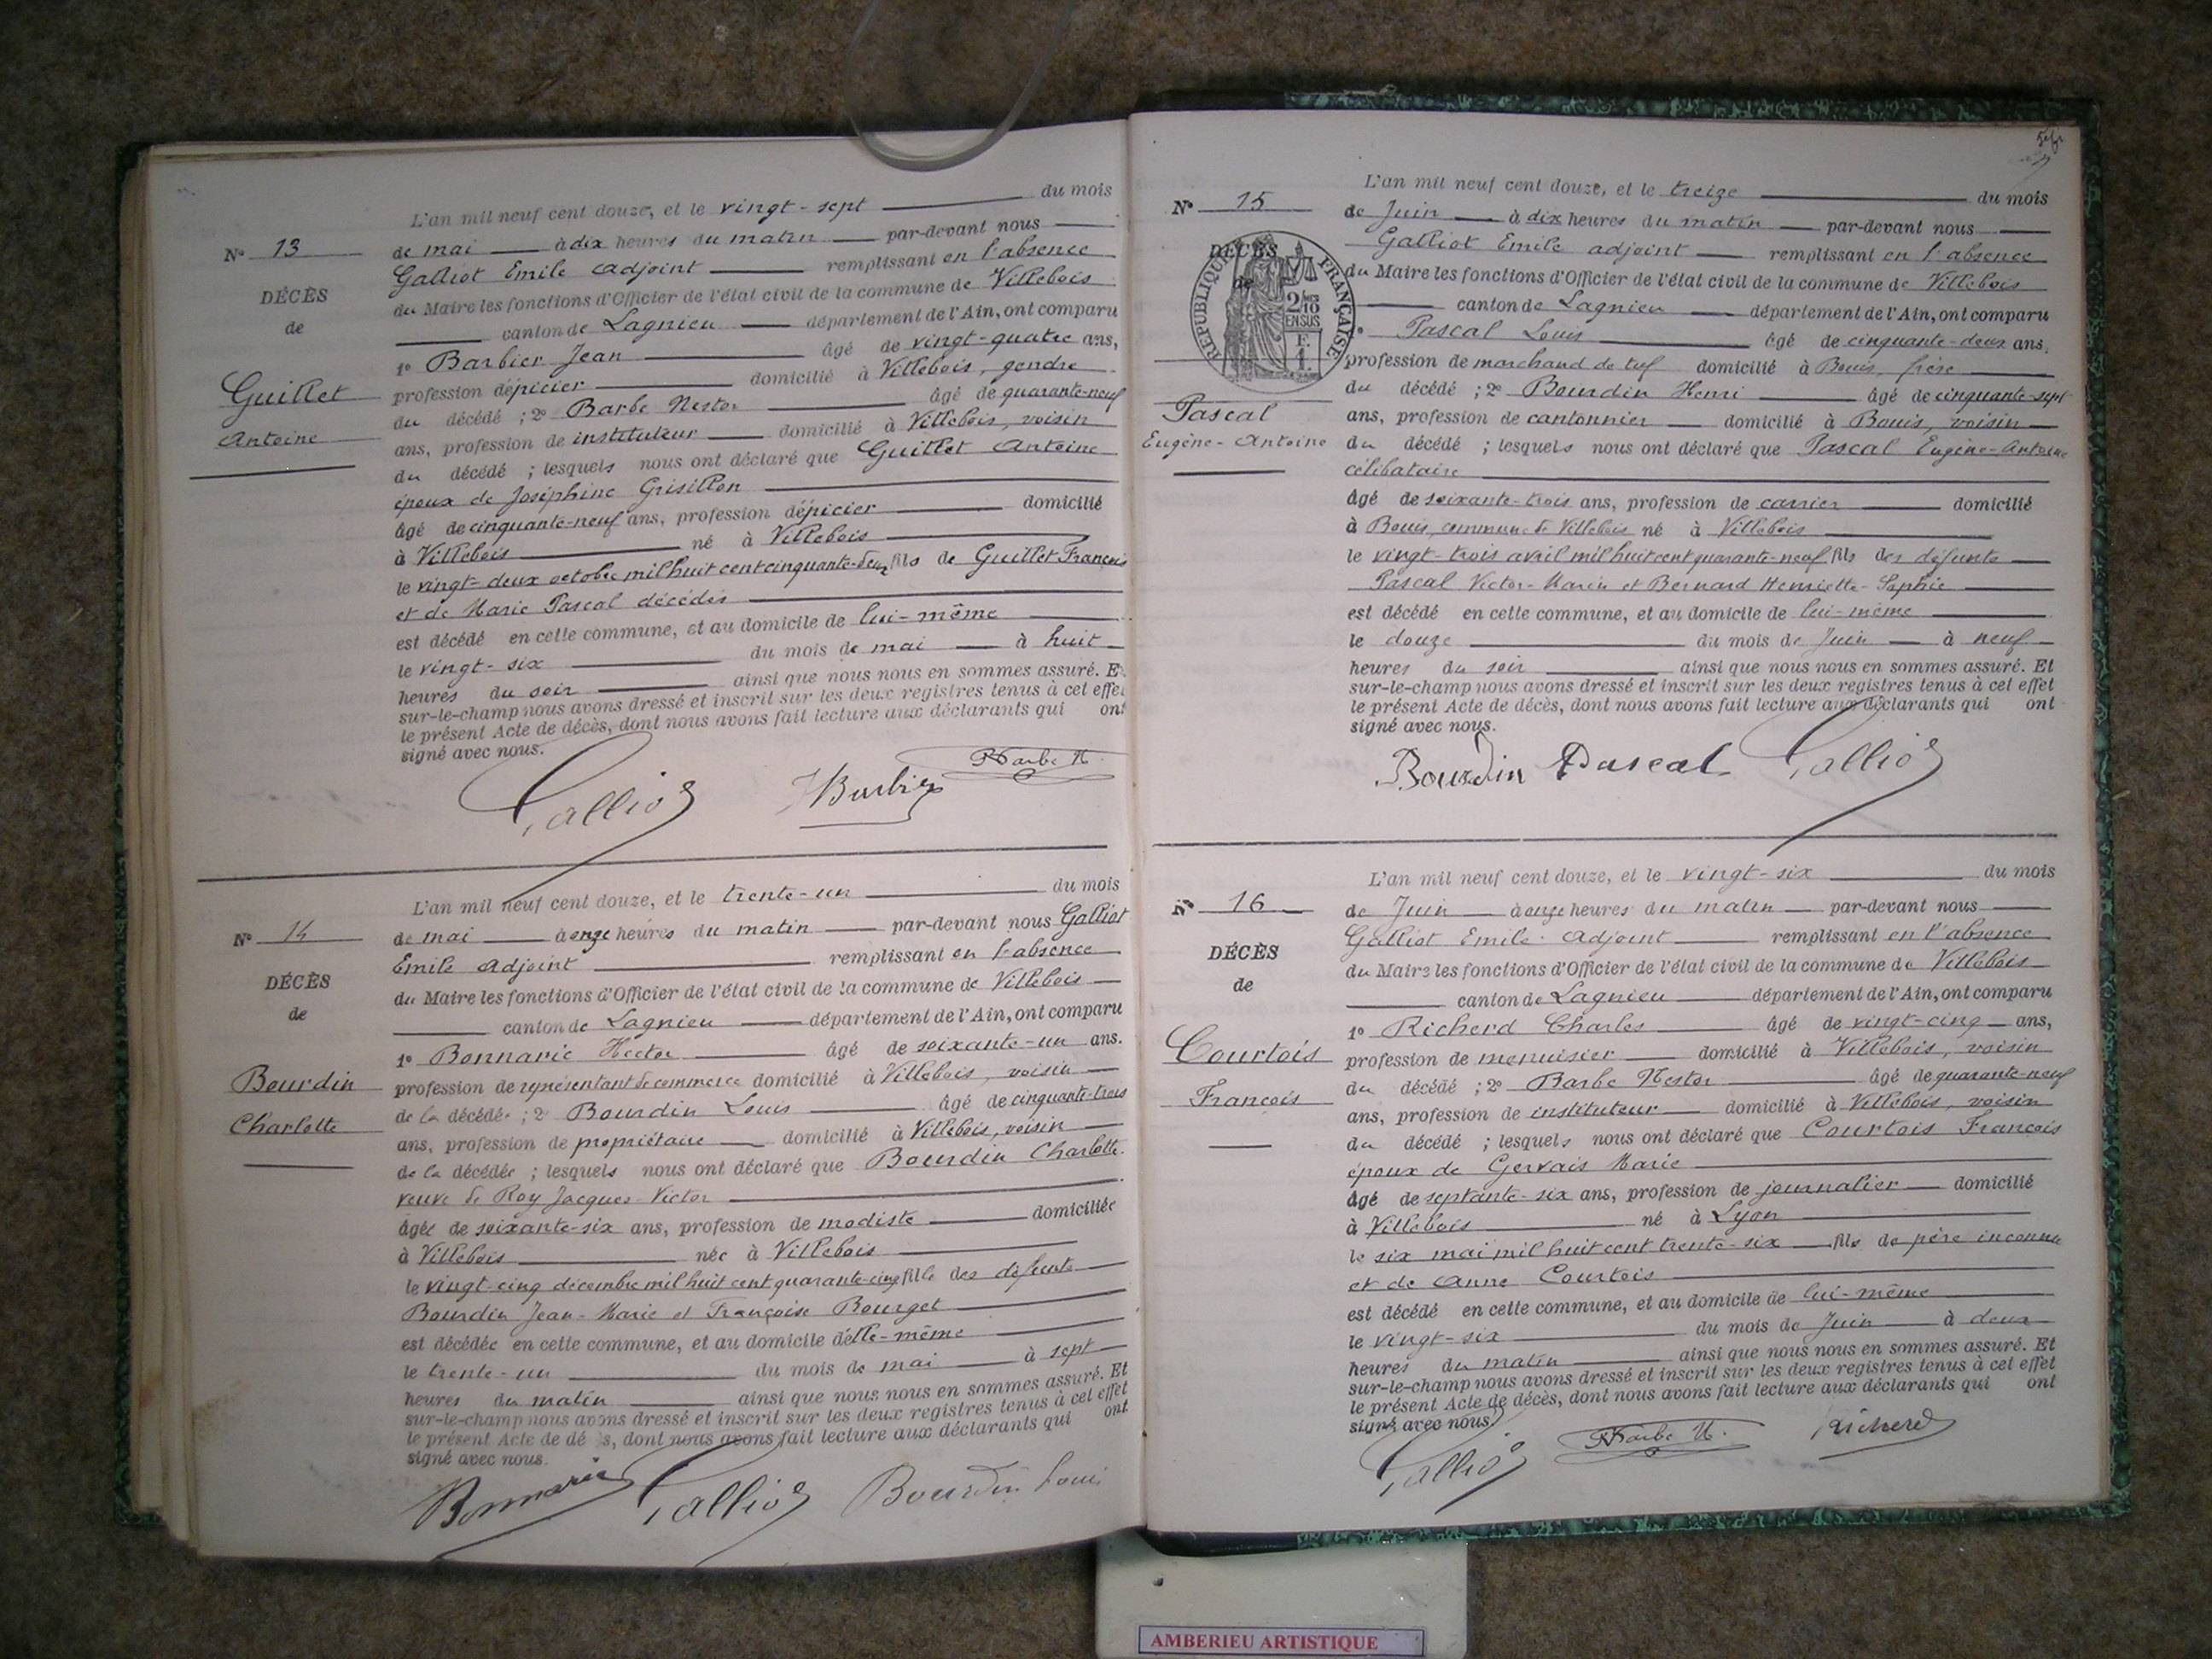 L'an mil neuf cent douze, et le vingt-sept du mois
N° 13
de mai à dix heures du matin par-devant nous
Galliot Emile adjoint remplissant en l'absence
DÉCÈS
du Maire les fonctions d'Officier de l'état civil de la commune de Villebois
de
canton de Lagnieu département de l'Ain, ont comparu
1° Barbier Jean âgé de vingt-quatre ans,
Guillet
profession d'épicier domicilié à Villebois, gendre
du décédé ; 2° Barbe Nestor âgé de quarante-neuf
Antoine
ans, profession de instituteur domicilié à Villebois, voisin
du décédé ; lesquels nous ont déclaré que Guillet Antoine
époux de Joséphine Grisillon
âgé de cinquante-neuf ans, profession d'épicier domicilié
à Villebois né à Villebois
le vingt-deux octobre mil huit cent cinquante-deux fils de Guillet François
et de Marie Pascal décédés
est décédé en cette commune, et au domicile de lui-même
le vingt-six du mois de mai à huit
heures du soir ainsi que nous nous en sommes assuré. Et
sur-le-champ nous avons dressé et inscrit sur les deux registres tenus à cet effet
le présent Acte de décès, dont nous avons fait lecture aux déclarants qui ont
signé avec nous.
Galliot Barbier Barbe N.
L'an mil neuf cent douze, et le trente-un du mois
N° 14
de mai à onze heures du matin par-devant nous Galliot
Emile adjoint remplissant en l'absence
DÉCÈS
du Maire les fonctions d'Officier de l'état civil de la commune de Villebois
de
canton de Lagnieu département de l'Ain, ont comparu
1° Bonnarie Hector âgé de soixante-un ans.
Bourdin
profession de représentant de commerce domicilié à Villebois, voisin
de la décédée ; 2° Bourdin Louis âgé de cinquante-trois
Charlotte
ans, profession de propriétaire domicilié à Villebois, voisin
de la décédée ; lesquels nous ont déclaré que Bourdin Charlotte
veuve de Roy Jacques-Victor
âgée de soixante-six ans, profession de modiste domiciliée
à Villebois née à Villebois
le vingt-cinq décembre mil huit cent quarante-cinq fille des défunts
Bourdin Jean-Marie et Françoise Bourget
est décédée en cette commune, et au domicile d'elle-même
le trente-un du mois de mai à sept
heures du matin ainsi que nous nous en sommes assuré. Et
sur-le-champ nous avons dressé et inscrit sur les deux registres tenus à cet effet
le présent Acte de dé s, dont nous avons fait lecture aux déclarants qui ont
signé avec nous.
Bonnarie Galliot Bourdin Louis
L'an mil neuf cent douze, et le treize du mois
N° 15
de Juin à dix heures du matin par-devant nous
Galliot Emile adjoint remplissant en l'absence
DÉCÈS
de
RÉPUBLIQUE FRANÇAISE
2/10
EN SUS
F.
1.
du Maire les fonctions d'Officier de l'état civil de la commune de Villebois
canton de Lagnieu département de l'Ain, ont comparu
Pascal Louis âgé de cinquante-deux ans,
profession de marchand de tuf domicilié à Bouis, frère
du décédé ; 2° Bourdin Henri âgé de cinquante-sept
Pascal
ans, profession de cantonnier domicilié à Bouis, voisin
Eugène-Antoine
du décédé ; lesquels nous ont déclaré que Pascal Eugène-Antoine
célibataire
âgé de soixante-trois ans, profession de carrier domicilié
à Bouis, commune de Villebois né à Villebois
le vingt-trois avril mil huit cent quarante-neuf fils des défunts
Pascal Victor-Marin et Bernard Henriette-Sophie
est décédé en cette commune, et au domicile de lui-même
le douze du mois de Juin à neuf
heures du soir ainsi que nous nous en sommes assuré. Et
sur-le-champ nous avons dressé et inscrit sur les deux registres tenus à cet effet
le présent Acte de décès, dont nous avons fait lecture aux déclarants qui ont
signé avec nous.
Bourdin Pascal Galliot
L'an mil neuf cent douze, et le vingt-six du mois
N° 16
de Juin à onze heures du matin par-devant nous
Galliot Emile adjoint remplissant en l'absence
DÉCÈS
du Maire les fonctions d'Officier de l'état civil de la commune de Villebois
de
canton de Lagnieu département de l'Ain, ont comparu
1° Richerd Charles âgé de vingt-cinq ans,
Courtois
profession de menuisier domicilié à Villebois, voisin
du décédé ; 2° Barbe Nestor âgé de quarante-neuf
François
ans, profession de instituteur domicilié à Villebois, voisin
du décédé ; lesquels nous ont déclaré que Courtois François
époux de Gervais Marie
âgé de septante-six ans, profession de journalier domicilié
à Villebois né à Lyon
le six mai mil huit cent trente-six fils de père inconnu
et de Anne Courtois
est décédé en cette commune, et au domicile de lui-même
le vingt-six du mois de Juin à deux
heures du matin ainsi que nous nous en sommes assuré. Et
sur-le-champ nous avons dressé et inscrit sur les deux registres tenus à cet effet
le présent Acte de décès, dont nous avons fait lecture aux déclarants qui ont
signé avec nous.
Galliot Barbe N. Richerd
AMBERIEU ARTISTIQUE